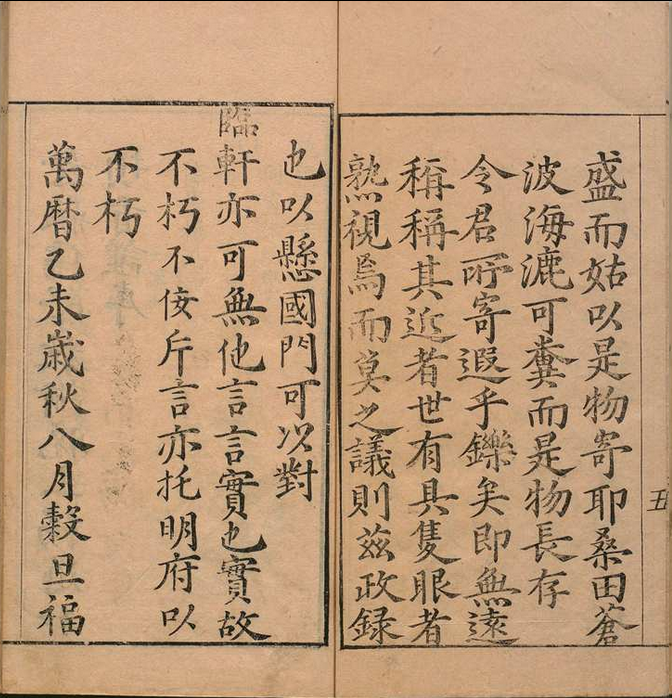 盛而姑以是物寄耶桑田蒼
波海漉可糞而是物長存
令君所寄遐乎鑠矣即無遠
稱稱其近者世有具隻眼者
熟視焉而莫之議則茲政録
五
也以懸國門可以對
臨軒亦可無他言言實也實故
不朽不佞斤言亦托明府以
不朽
萬曆乙未歲秋八月穀旦福